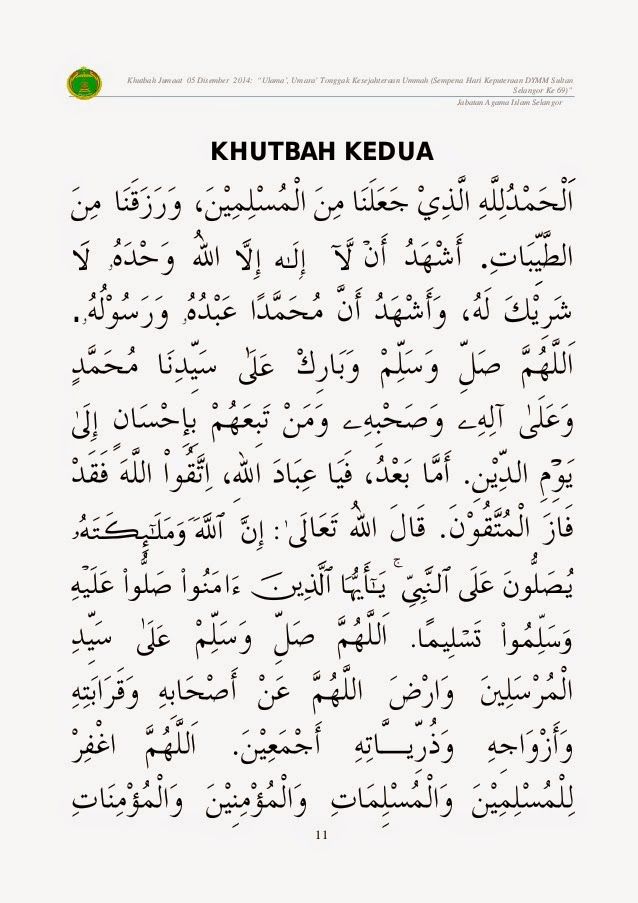 Khutbah Jumaat 05 Disember 2014: "Ulama', Umara' Tonggak Kesejahteraan Ummah (Sempena Hari Keputeraan DYMM Sultan
Selangor Ke 69)"
Jabatan Agama Islam Selangor
KHUTBAH KEDUA
اَلْحَمْدُلِلَّهِ الَّذِيْ جَعَلَنَا مِنَ الْمُسْلِمِيْنَ، وَرَزَقَنَا مِنَ
الطَّيِّبَاتِ. أَشْهَدُ أَنْ لَّآ إِلٰه إِلَّا اللهُ وَحْدَهُ لَا
شَرِيْكَ لَهُ، وَأَشْهَدُ أَنَّ مُحَمَّدًا عَبْدُهُ وَرَسُوْلُهُ.
اَللَّهُمَّ صَلِّ وَسَلِّمْ وَبَارِكْ عَلَىٰ سَيِّدِنَا مُحَمَّدٍ
وَعَلَىٰ آلِهِ وَصَحْبِهِ وَمَنْ تَبِعَهُمْ بِإِحْسَانٍ إِلَىٰ
يَوْمِ الدِّيْنِ. أَمَّا بَعْدُ، فَيَا عِبَادَ اللهِ، اِتَّقُوا اللَّهَ فَقَدْ
فَازَ الْمُتَّقُوْنَ. قَالَ اللهُ تَعَالَىٰ: إِنَّ ٱللَّهَ وَمَلَٰٓئِكَتَهُۥ
يُصَلُّونَ عَلَى ٱلنَّبِيِّ ۚ يَٰٓأَيُّهَا ٱلَّذِينَ ءَامَنُوا۟ صَلُّوا۟ عَلَيْهِ
وَسَلِّمُوا۟ تَسْلِيمًا. اَللَّهُمَّ صَلِّ وَسَلِّمْ عَلَىٰ سَيِّدِ
الْمُرْسَلِيْنَ وَارْضَ اللَّهُمَّ عَنْ أَصْحَابِهِ وَقَرَابَتِهِ
وَأَزْوَاجِهِ وَذُرِّيَّاتِهِ أَجْمَعِيْنَ. اَللَّهُمَّ اغْفِرْ
لِلْمُسْلِمِيْنَ وَالْمُسْلِمَاتِ وَالْمُؤْمِنِيْنَ وَالْمُؤْمِنَاتِ
11